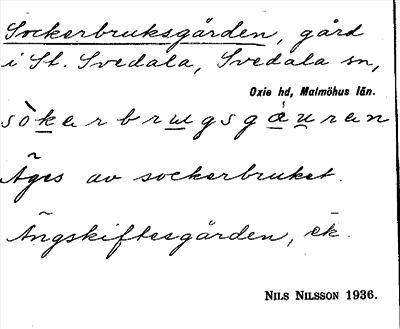 Sockerbruksgården, gård
i St. Svedala, Svedala sn,
Oxie hd, Malmöhus län.
sòkerbrugsgáuran
Äges av sockerbruket.
Ängskiftesgården, ék.
NILS NILSSON 1936.